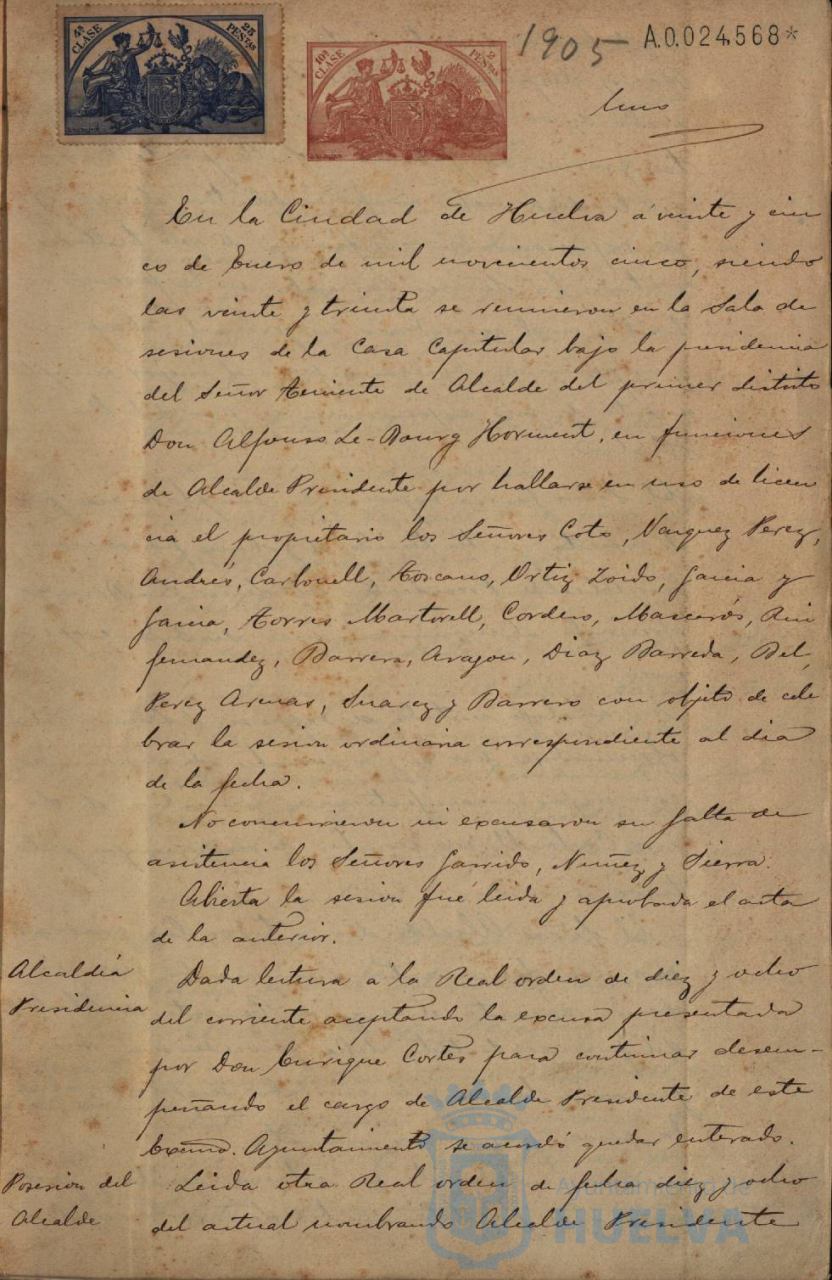 4ª CLASE 25 PESTAS
10ª CLASE 2 PESTAS
1905 A.0.024,568*
Uno
En la Ciudad de Huelva á veinte y cin
co de Enero de mil novecientos cinco, siendo
las veinte y treinta se reunieron en la Sala de
sesiones de la Casa Capitular bajo la presidencia
del Señor Teniente de Alcalde del primer distrito
Don Alfonso Le-Bourg Horment, en funciones
de Alcalde Presidente por hallarse en uso de licen
cia el propietario los Señores Coto, Vazquez Perez,
Andrés, Carbonell, Toscano, Ortiz Zoido, Garcia y
Garcia, Torres Martorell, Cordero, Mascarós,
fernandez, Barrera, Aragon, Diaz Barreda, Bel,
Perez Arenas, Suarez y Barrero con objeto de cele
brar la sesion ordinaria correspondiente al dia
de la fecha.
No concurrieron ni excusaron su falta de
asistencia los Señores Garrido, Nuñez y Sierra.
Abierta la sesion fué leida y aprobada el acta
de la anterior.
Alcaldía
Presidencia
Dada lectura á la Real orden de diez y ocho
del corriente aceptando la excusa presentada
por Don Enrique Cortés para continuar desem-
peñando el cargo de Alcalde Presidente de este
Excmo. Ayuntamiento se acordó quedar enterado.
Posesion del
Alcalde
Leida otra Real orden de fecha diez y ocho
del actual nombrando Alcalde Presidente
Ayuntamiento de
HUELVA